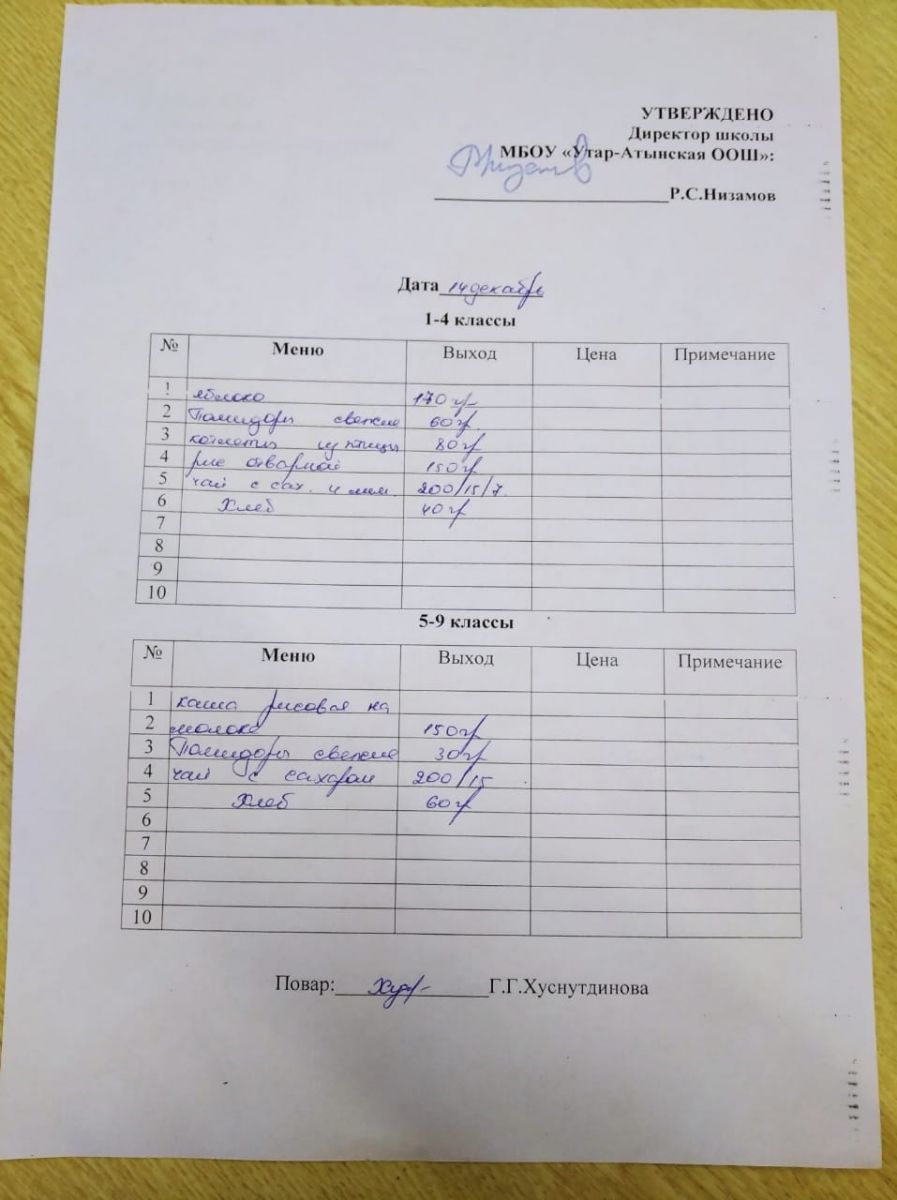 УТВЕРЖДЕНО
Директор школы
МБОУ «Утар-Атынская ООШ»:
Р.С.Низамов
Дата 14 декабрь
1-4 классы
№ Меню Выход Цена Примечание
1 яблоко 170 гр
2 Помидоры свежие 60 гр.
3 котлеты из птицы 80 гр
4 рис отварной 150 гр
5 чай с сах. и лим. 200/15/7.
6 Хлеб 40 гр
7
8
9
10
5-9 классы
№ Меню Выход Цена Примечание
1 каша рисовая на
2 молоке 150 гр
3 Помидоры свежие 30 гр
4 чай с сахаром 200/15
5 Хлеб 60 гр
6
7
8
9
10
Повар: Г.Г.Хуснутдинова